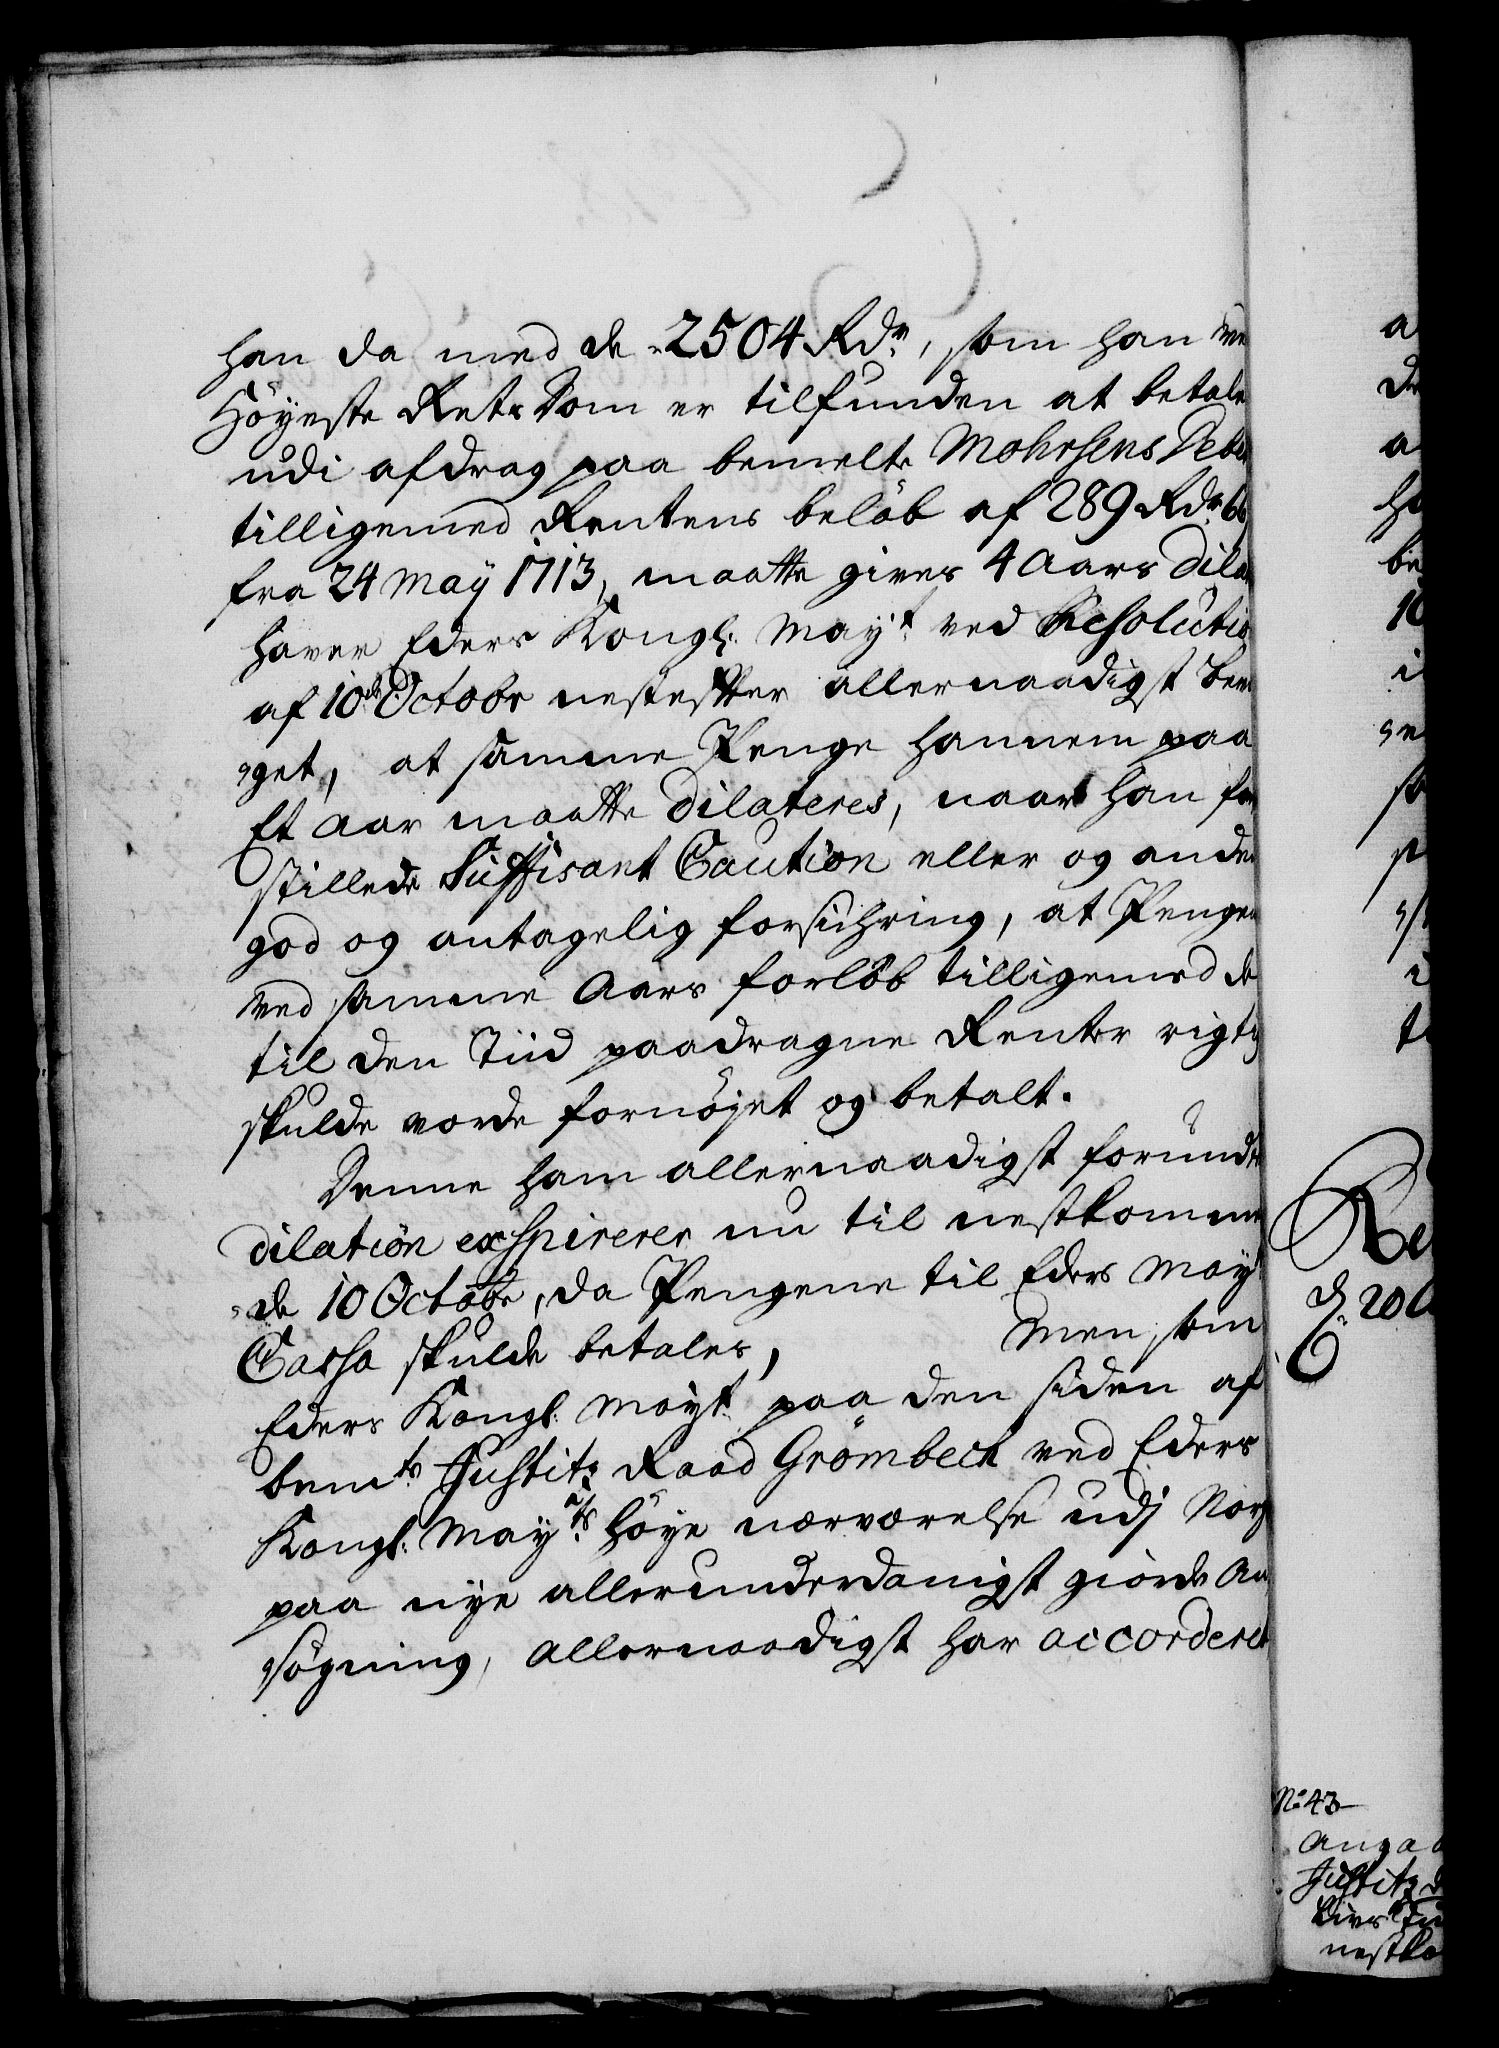 han da med de 2504 Rdr, som han ve
Höyeste Rets Dom er tilfunden at betale
udi afdrag paa bemelte Mohrsens Debet
tilligemed Rentens beløb af 289 Rdr 66
fra 24 May 1713, maatte gives 4 Aars Dila
haver Eders Kongl: Mayt ved Resolutio
af 10de Octobr nestefter allernaadigst bevil
get, at samme Penge hannem paa
Et Aar maatte dilateres, naar han for
stillede Suffisant Caution eller og anden
god og antagelig forsichring, at Pengene
ved samme Aars forløb tilligemed de
til den Tiid paadragne Renter rigtig
skulde vorde fornøjet og betalt.
Denne ham allernaadigst forundte
dilation exspirerer nu til nestkommen
de 10 Octobr, da Pengene til Eders Mayts
Cassa skulde betales, Men som
Eders Kongl: Mayt paa den siden af
bemte Justitz Raad Grömbech ved Eders
Kongl: Mayts høye nærværelse udj Norge
paa nye allerunderdanigst giorde An
søgning, allernaadigst har accorderet
Re
d. 20
No 43
Anga
Justitz
Livs
nestko